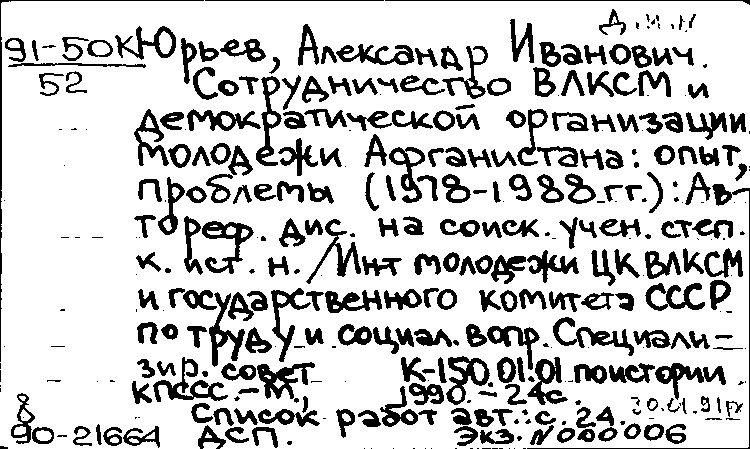 Д.И.Н
91-50К Юрьев, Александр Иванович.
52 Сотрудничество ВЛКСМ и
демократической организации
молодежи Афганистана: опыт,
проблемы (1978-1988 гг.): Ав-
тореф. дис. на соиск. учен. степ.
к. ист. н. / Ин-т молодежи ЦК ВЛКСМ
и государственного комитета СССР
по труду и социал. вопр. Специали-
зир. совет К-150.01.01 по истории
КПССС. - М., 1990. - 24с.
Список работ авт.: с. 24. 30.01.91
90-21664 ДСП. Экз. N 000006